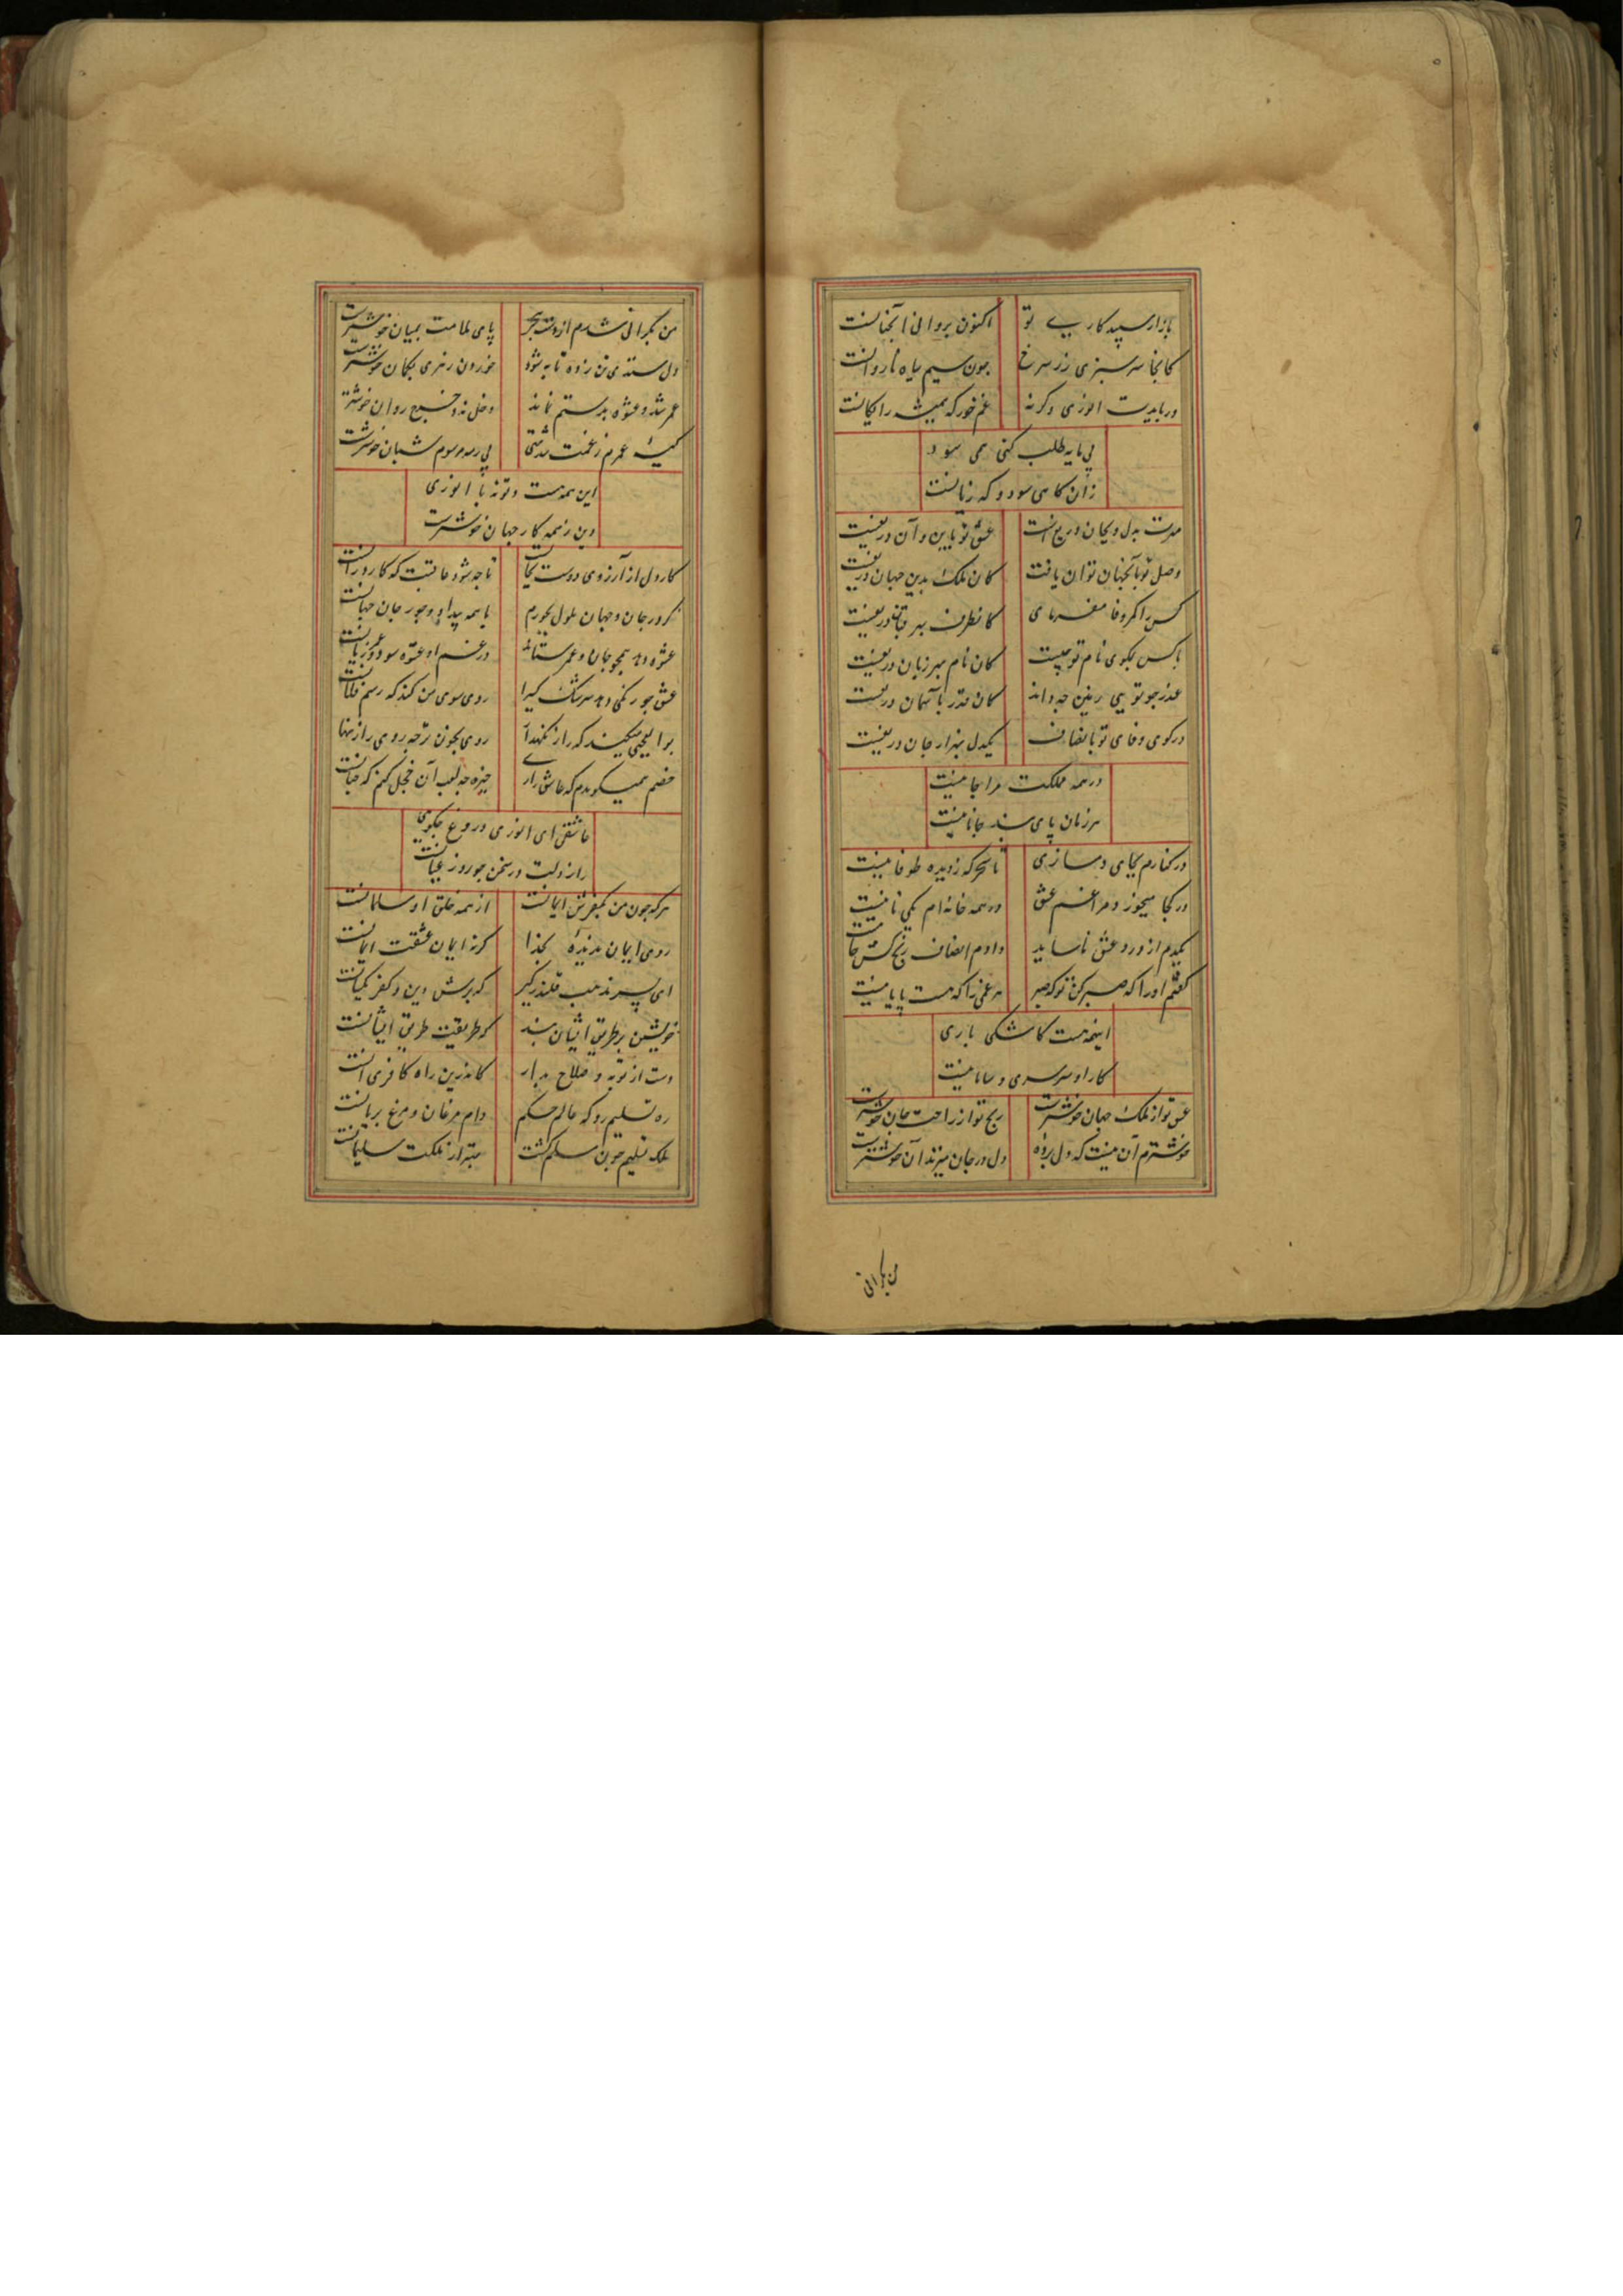 بازار سپید کاریی تو اکنون بروائی آنچنانست
کانجا سر سبزی زر سرخ چون سیم سیاه ناروانست
دریابدت انوری وگرنه غم خور که همیشه رایگانست
بی مایه طلب کنی همی سود
زان گاهی سود و گه زیانست
مهرت بدل و بجان دریغست عشق تو باین و آن دریغست
وصل تو بآنجهان توان یافت کان ملک بدین جهان دریغست
کس را کمر وفا مفرمای کان طرف بهر میان دریغست
با کس بمگوی نام تو چیست کان نام بهر زبان دریغست
قدر چو تویی زمین چه داند کان قدر بآسمان دریغست
در کوی وفای تو بانصاف یکدل بهزار جان دریغست
در همه مملکت مرا جانیست
هر زمان پای بند جانانیست
در کنارم بجای دمسازی تا سحرگه ز دیده طوفانیست
در کجا میخورد مرا غم عشق در همه خانه ام یکی نانیست
یکدم از درد عشق ناساید دادم انصاف رنج کش جانیست
گفتم او را که صبر کن که صبر هر غمی را که هست پایانیست
اینهمه هست کاشکی باری
کار او سرسری و سامانیست
عشق تو از ملک جهان خوشترست رنج تو از راحت جان خوشترست
خوشترم آن نیست که دل برده دل در جان میزند آن خوشترست
من بکرانی
من بکرانی شدم از دست هجر پای ملامت بمیان خوشترست
دل ستدی من زده تا به شود خوردن زهری بگمان خوشترست
عمر شد و عشوه بدستم نماند دخل نه و خرج روان خوشترست
کیسه عمرم ز غمت شد تهی بی رمه مرسوم شبان خوشترست
این همه هست و تو نه با انوری
وین ز همه کار جهان خوشترست
کار دل از آرزوی دوست بجانست تا چه شود عاقبت که کار درآنست
کرد ز جان و جهان ملول بجورم با همه بیداد و جور جان جهانست
عشوه دهد همچو جان و عمر ستاند در غم او عشوه سود و عمر زیانست
عشق چو رنگی دهد سرشک کسی را روی سوی من کند که رسم فلانست
بوالعجبی میکند که راز نگهدار روی بخون تر چه روی راز نهانست
خصم همی گویدم که عاشق زاری خیره چه لعب آن خجل کنم که چنانست
عاشقی ای انوری دروغ چگویی
راز دلت در سخن چو روز عیانست
هر که چون من بکفرش ایمانست از همه خلق او مسلمانست
روی ایمان ندیده بخدا گر نه ایمان عشقت ایمانست
ای پسر مذهب قلندر گیر که برش دین و کفر یکسانست
خویشتن بر طریق ایشان بند کو طریقت طریق ایشانست
دست از توبه و صلاح بدار کاندرین راه کافری آنست
ره تسلیم رو که عالم حکم دام مرغان و مرغ بریانست
ملک تسلیم چون مسلم گشت بهتر از ملکت سلیمانست